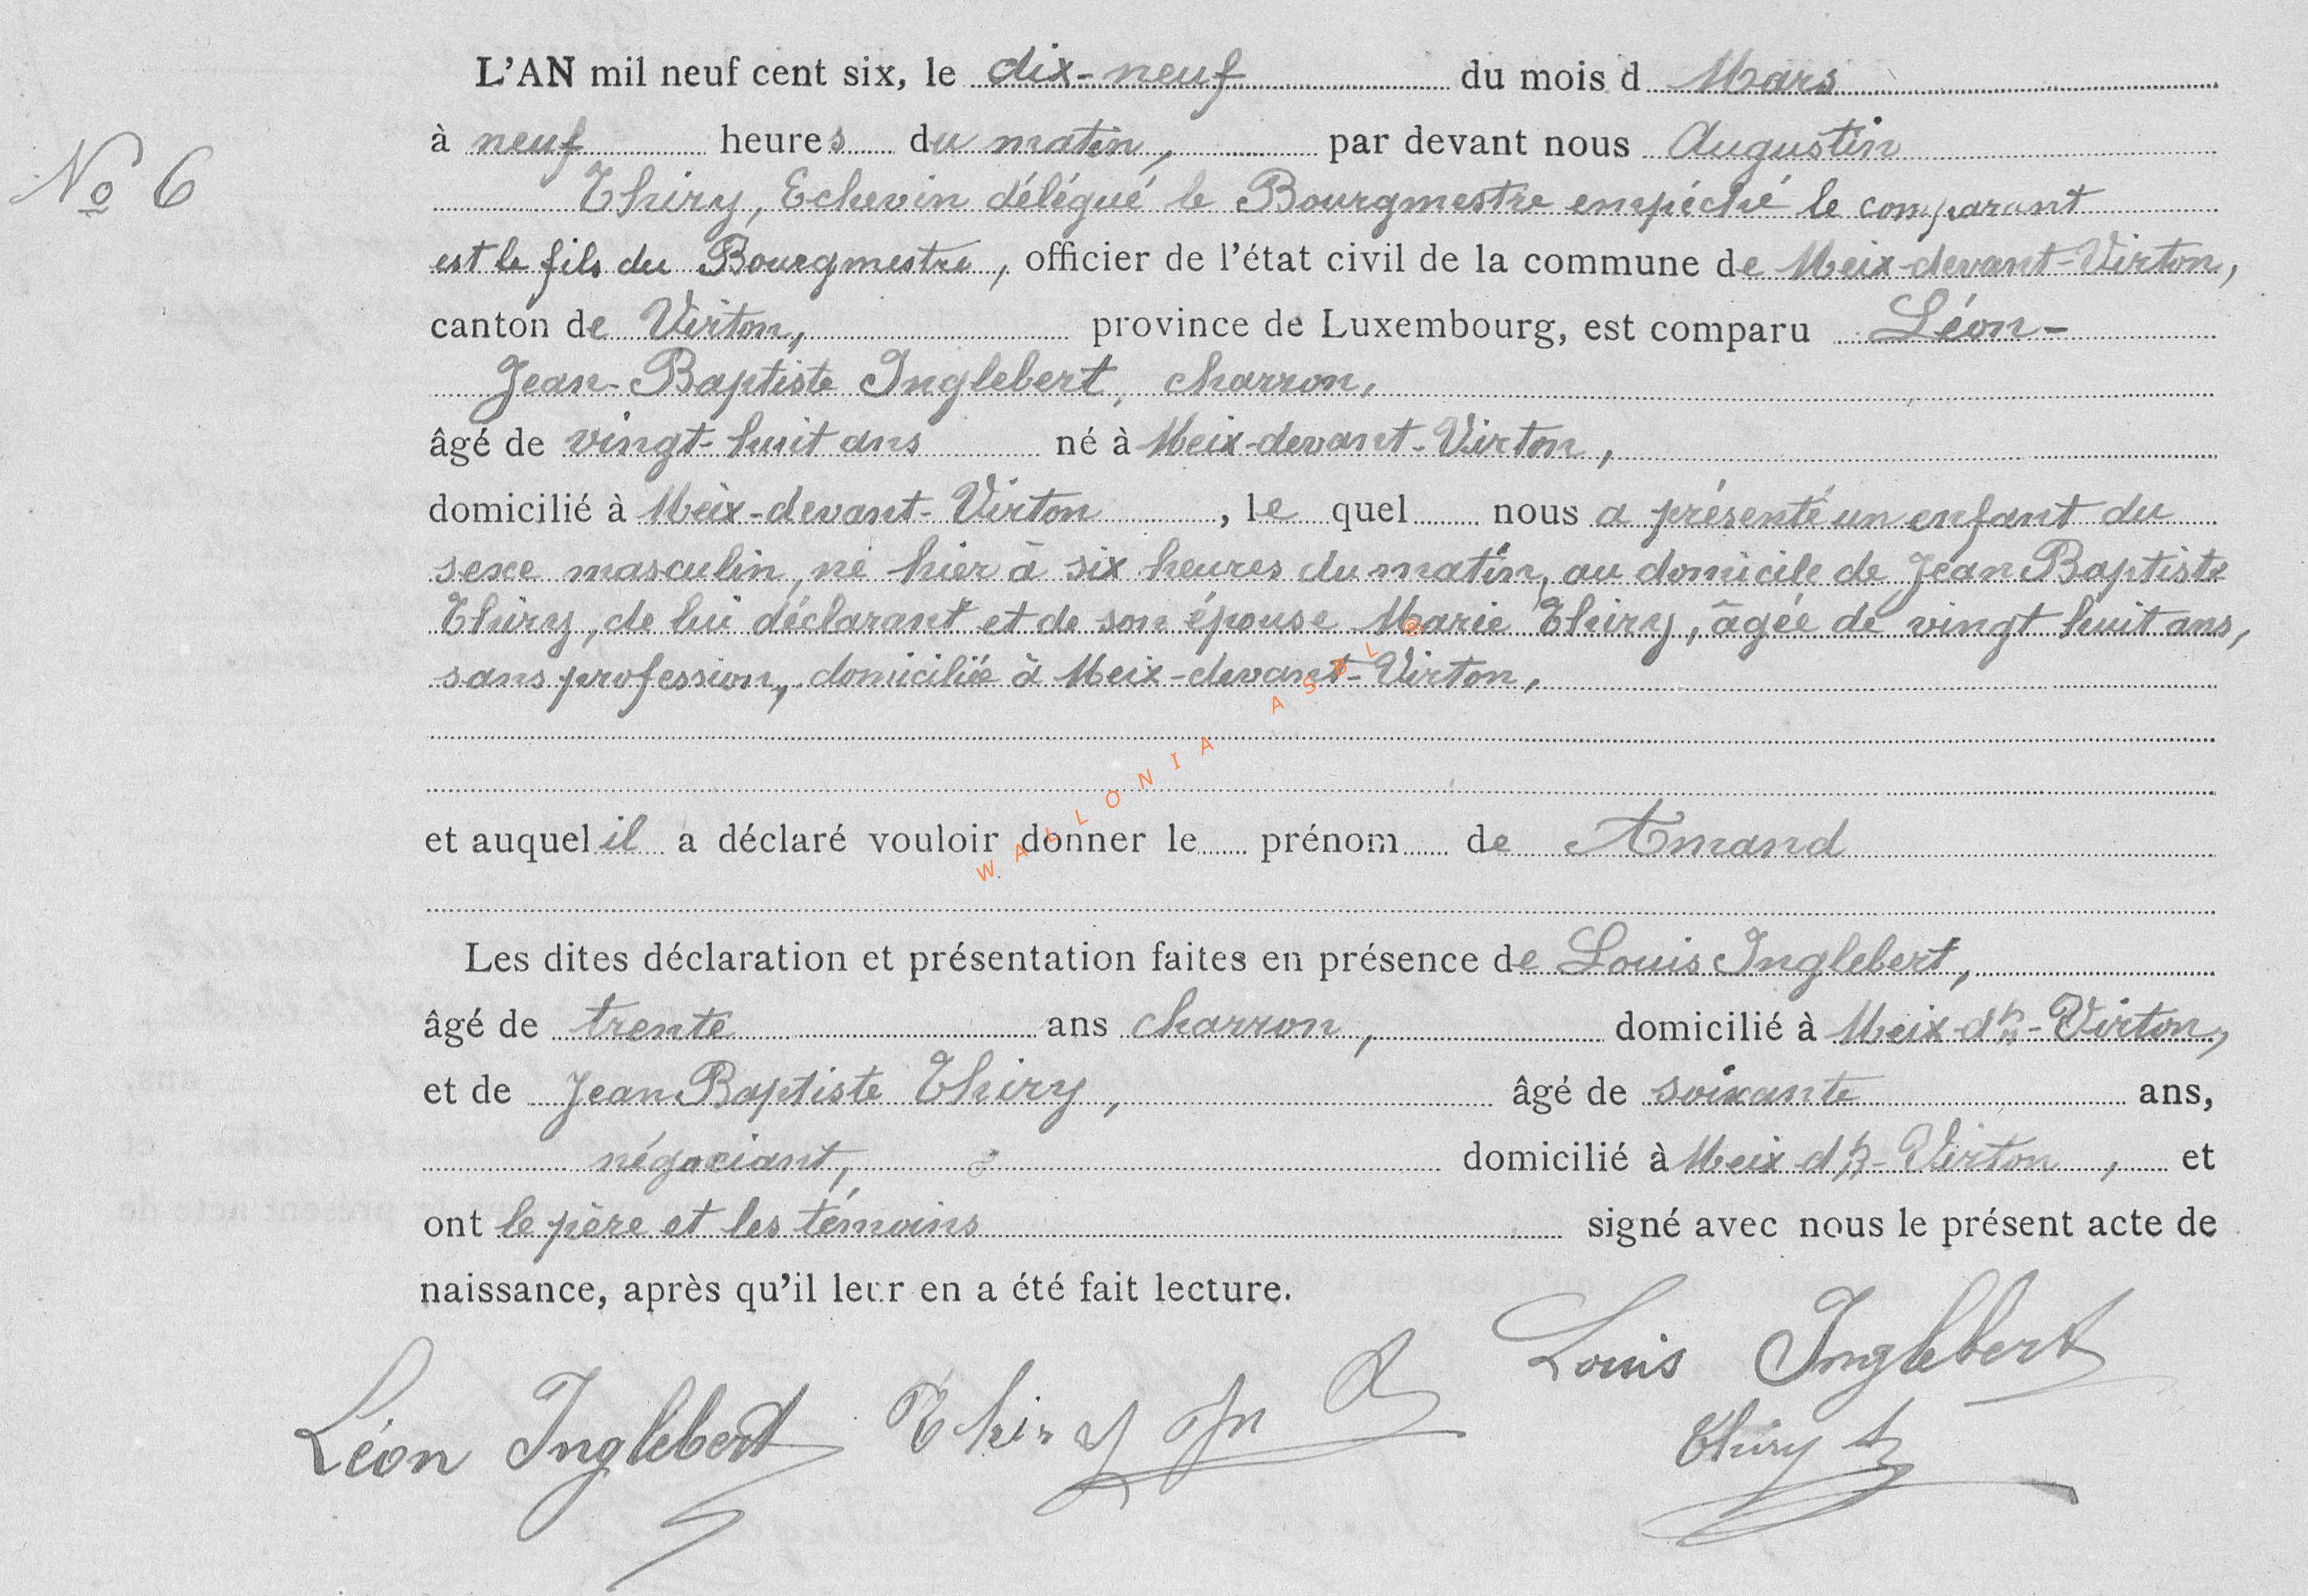 L'AN mil neuf cent six, le dix-neuf du mois d Mars
à neuf heures du matin, par devant nous Augustin
No 6
Thiry, Echevin délégué le Bourgmestre empéché le comparant
est le fils du Bourgmestre, officier de l'état civil de la commune de Meix-devant-Virton,
canton de Virton, province de Luxembourg, est comparu Léon-
Jean-Baptiste Inglebert, charron,
âgé de vingt-huit ans né à Meix-devant-Virton,
domicilié à Meix-devant-Virton, le quel nous a présenté un enfant du
sexe masculin, né hier à six heures du matin, au domicile de Jean Baptiste
Thiry, de lui déclarant et de son épouse Marie Thiry, âgée de vingt huit ans,
sans profession, domiciliée à Meix-devant-Virton,
WALLONIA ASBL ®
et auquel il a déclaré vouloir donner le prénom de Amand
Les dites déclaration et présentation faites en présence de Louis Inglebert,
âgé de trente ans charron, domicilié à Meix-dt-Virton,
et de Jean Baptiste Thiry, âgé de soixante ans,
négociant, domicilié à Meix dt-Virton, et
ont le père et les témoins signé avec nous le présent acte de
naissance, après qu'il leur en a été fait lecture.
Louis Inglebert
Léon Inglebert Thiry Jn B
Thiry A